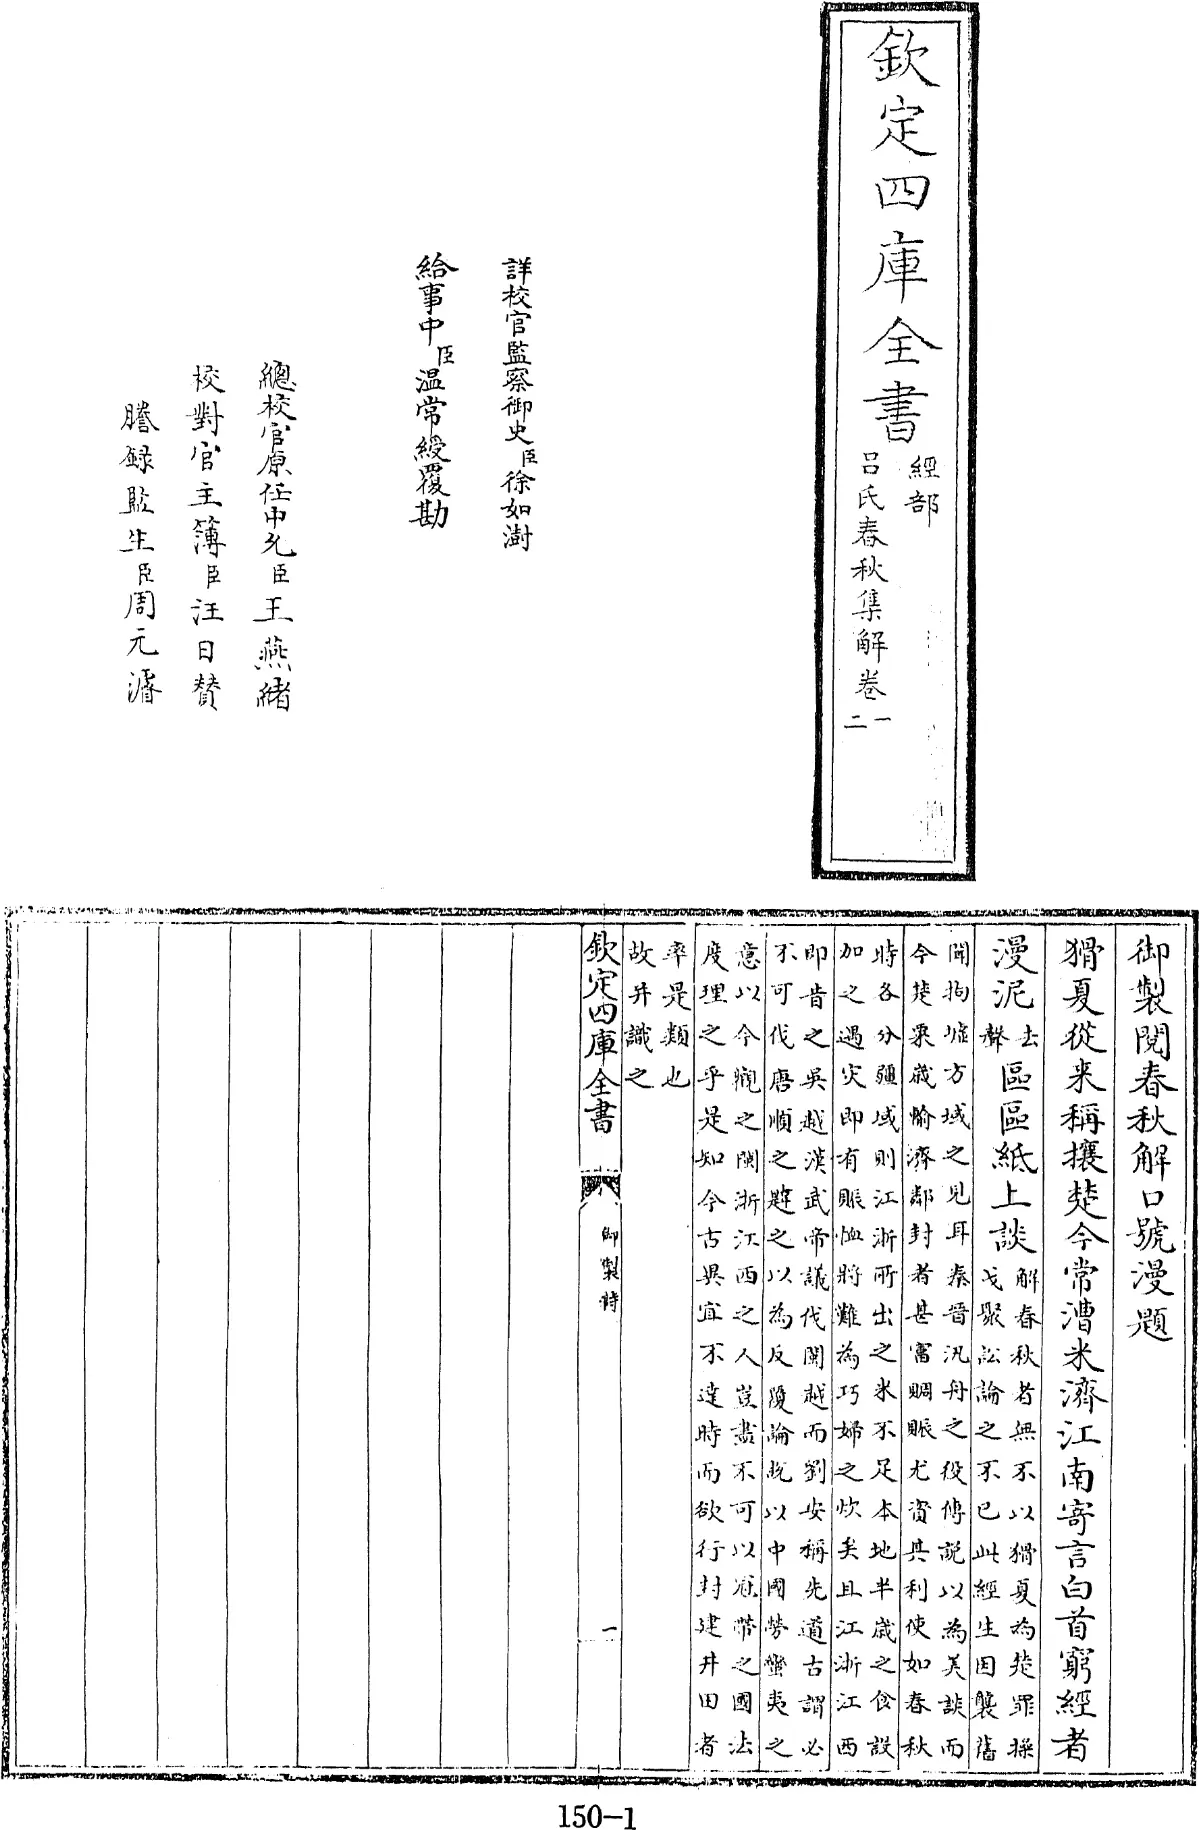 欽定四庫全書
經部
呂氏春秋集解卷一二
詳校官監察御史臣徐如澍
給事中臣温常綬覆勘
總校官原任中允臣王燕緒
校對官主簿臣汪日贊
謄録監生臣周元濬
御製閱春秋解口號漫題
猾夏從来稱攘楚今常漕米濟江南寄言白首窮經者
漫泥去聲區區紙上談解春秋者無不以猾夏為楚罪操
戈聚訟論之不已此經生因襲舊
聞拘墟方域之見耳秦晉汎舟之役傳說以為美談而
今楚粟歲輸濟鄰封者甚富賙賑尤資其利使如春秋
時各分疆域則江浙所出之米不足本地半歲之食設
加之遇灾即有賑恤將難為巧婦之炊矣且江浙江西
即昔之吳越漢武帝議伐閩越而劉安稱先道古謂必
不可伐唐順之韙之以為反覆論說以中國勞蠻夷之
意以今觀之閩浙江西之人豈盡不可以冠帶之國法
度理之乎是知今古異宜不達時而欲行封建井田者
率是類也
故并識之
欽定四庫全書
御製詩
一
150-1